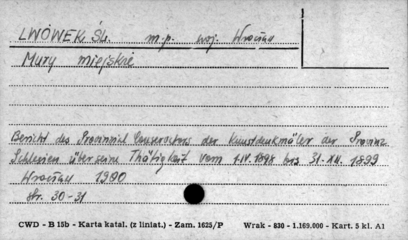 LWÓWEK ŚL. m.p. woj. Wrocław
Mury miejskie
Bericht des Provinzial Conservators der Kunstdenkmäler der Provinz
Schlesien über seine Thätigkeit vom 1.IV.1898 bis 31.XII.1899
Wrocław 1900
Str. 30-31
CWD - B 15b - Karta katal. (z liniat.) - Zam. 1625/P Wrak - 830 - 1.169.000 - Kart. 5 kl. A1